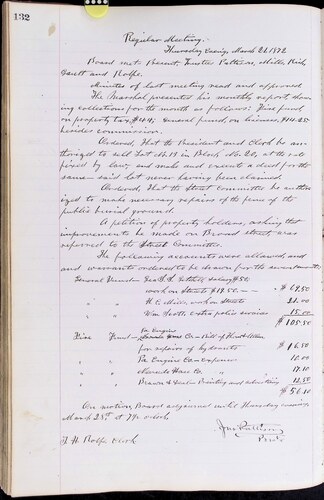 132
Regular Meeting.
Thursday Evening, March 21 1872
Board met. Present, Trustees Patterson, Miller, Rich,
and Rolfe.
Minutes of last meeting read and approved
The Marshal presented his monthly report show
ing collections for the month as follows: Fire fund
on property tax, General fund, on licenses,
besides commission.
Ordered, That the President and Clerk be au-
thorized to sell Lot No 13 in Block No 20, at the rate
fixed by law, and make and execute a deed for the
same - said lot never having been claimed
Ordered, That the Street Committee be author
ized to make necessary repairs of the fence of the
public burial ground.
A petition of property holders, asking that
improvements be made on Broad street, was
referred to the Street Committee.
The following accounts were allowed and
and warrants ordered to be drawn for the same
General Fund salary $50,
work on Streets - $69.50
" " work on Streets 21.00
" " Wm Scott, extra police services 15.00
$105.50
Fire Fund Pa Engine Co Bill of
for repairs of hydrants $16.50
" " Pa Engine Co Expenses 10.00
" " Nevada Hose Co 17.10
" " Printing and advertising 12.50
$56.10
On motion, Board adjourned until Thursday evening
March 28th at 7½ o'clock
J. H. Rolfe Clerk
Jno Patterson
Pres't